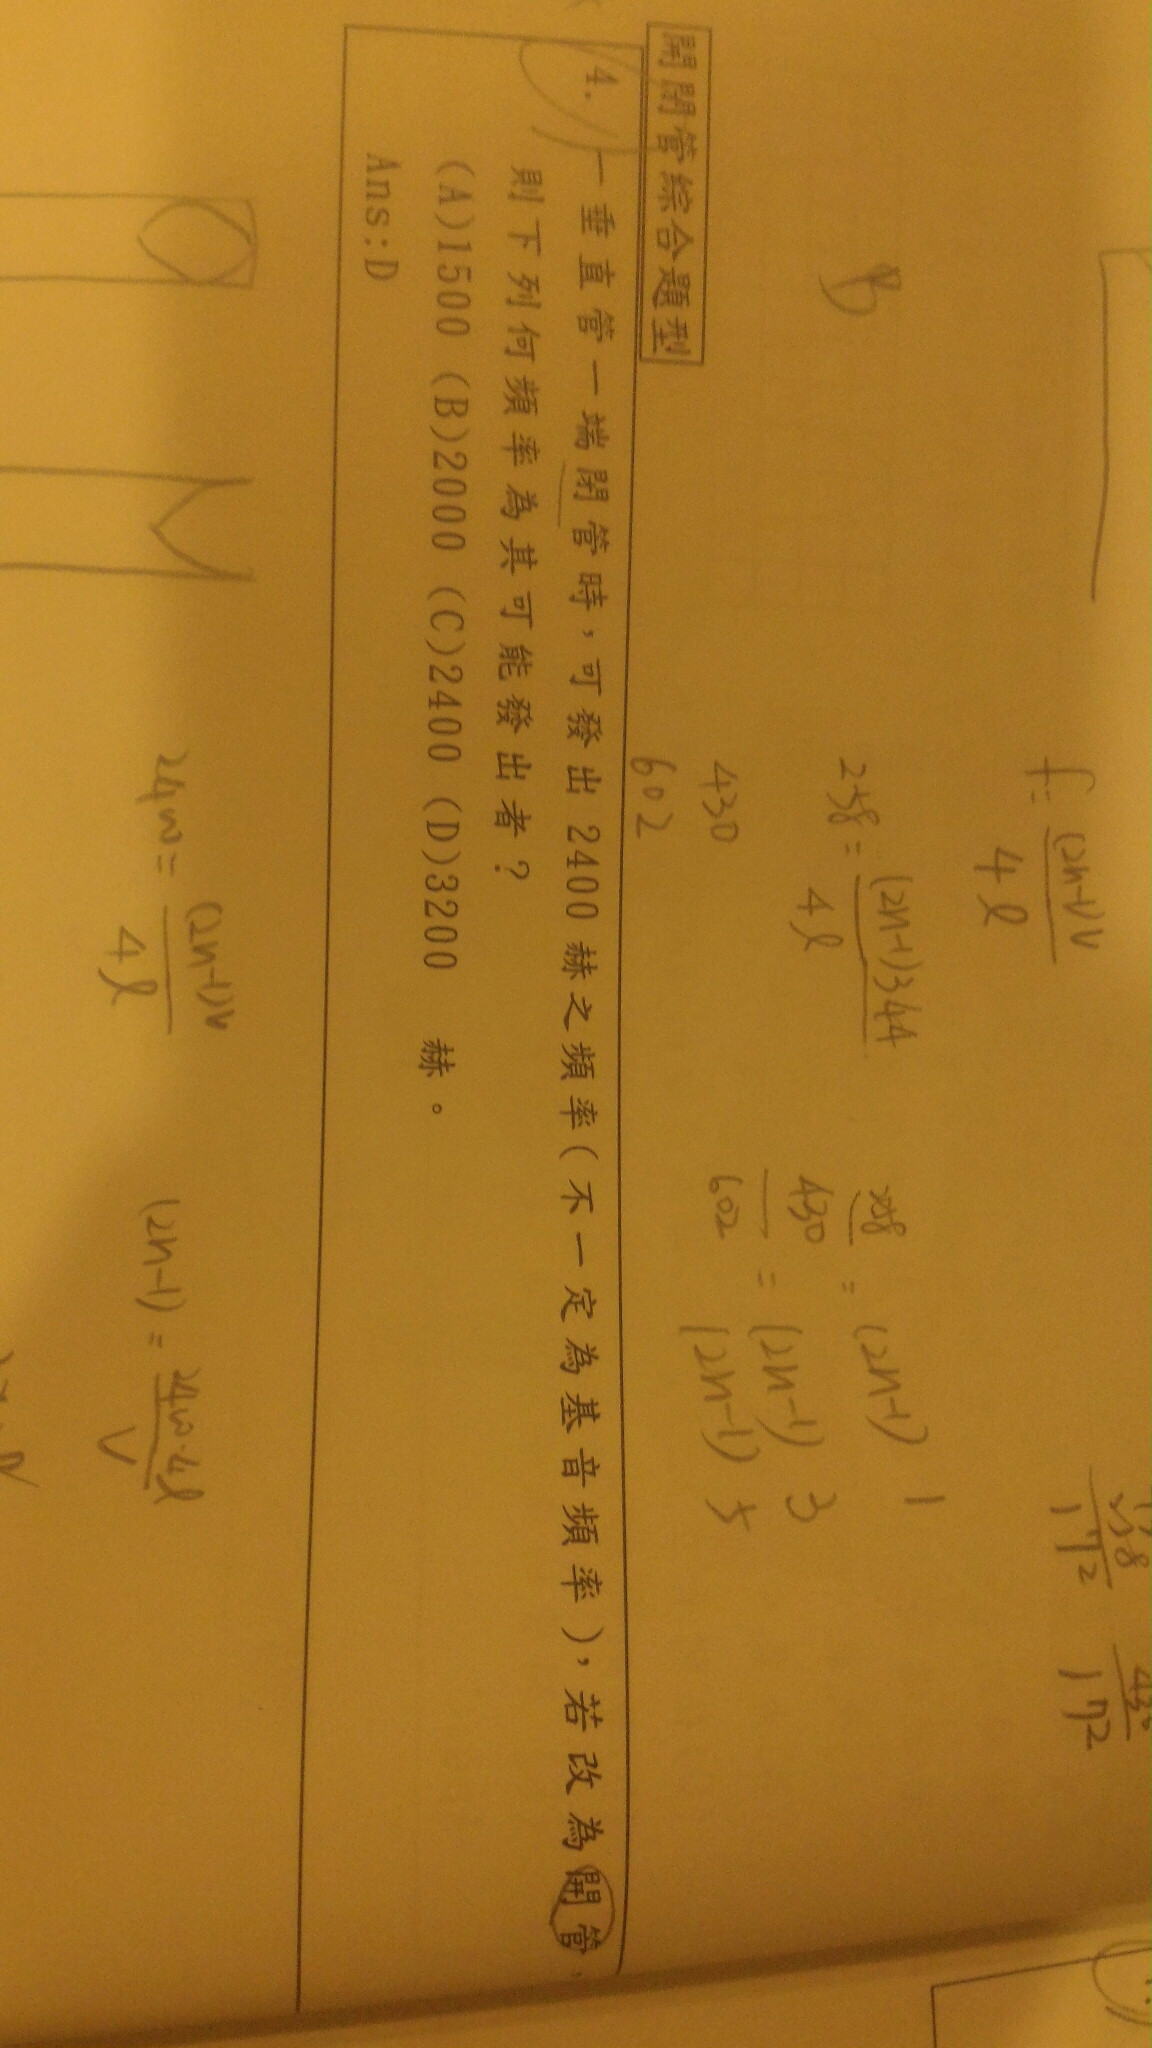 f = (2n-1)V / 4ℓ
B
258 = (2n-1)344 / 4ℓ
258 = (2n-1) 1
430
430 = (2n-1) 3
602
602 (2n-1) 5
258 / 172
430 / 172
開閉管綜合題型
4. 一垂直管一端閉管時，可發出2400赫之頻率(不一定為基音頻率)，若改為開管，
則下列何頻率為其可能發出者？
(A)1500 (B)2000 (C)2400 (D)3200 赫。
Ans:D
2400 = (2n-1)V / 4ℓ
(2n-1) = 2400·4ℓ / V